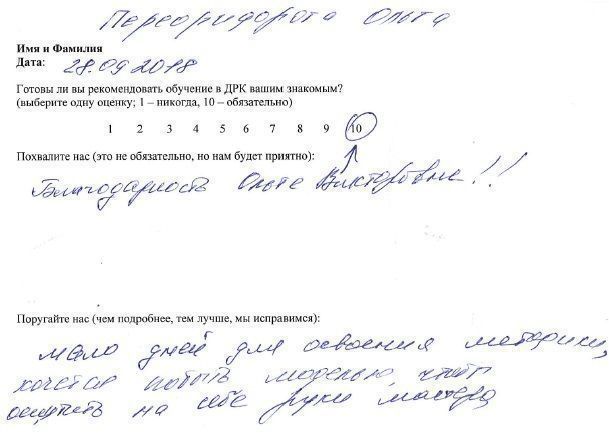 Ольга
Имя и Фамилия
Дата: 28.09.2018
Готовы ли вы рекомендовать обучение в ДРК вашим знакомым?
(выберите одну оценку; 1 – никогда, 10 – обязательно)
1 2 3 4 5 6 7 8 9 10
Похвалите нас (это не обязательно, но нам будет приятно):
Благодарность Ольге Викторовне!!
Поругайте нас (чем подробнее, тем лучше, мы исправимся):
мало дней для освоения методики,
хочется побыть моделью, чтобы
ощутить на себе руки мастера